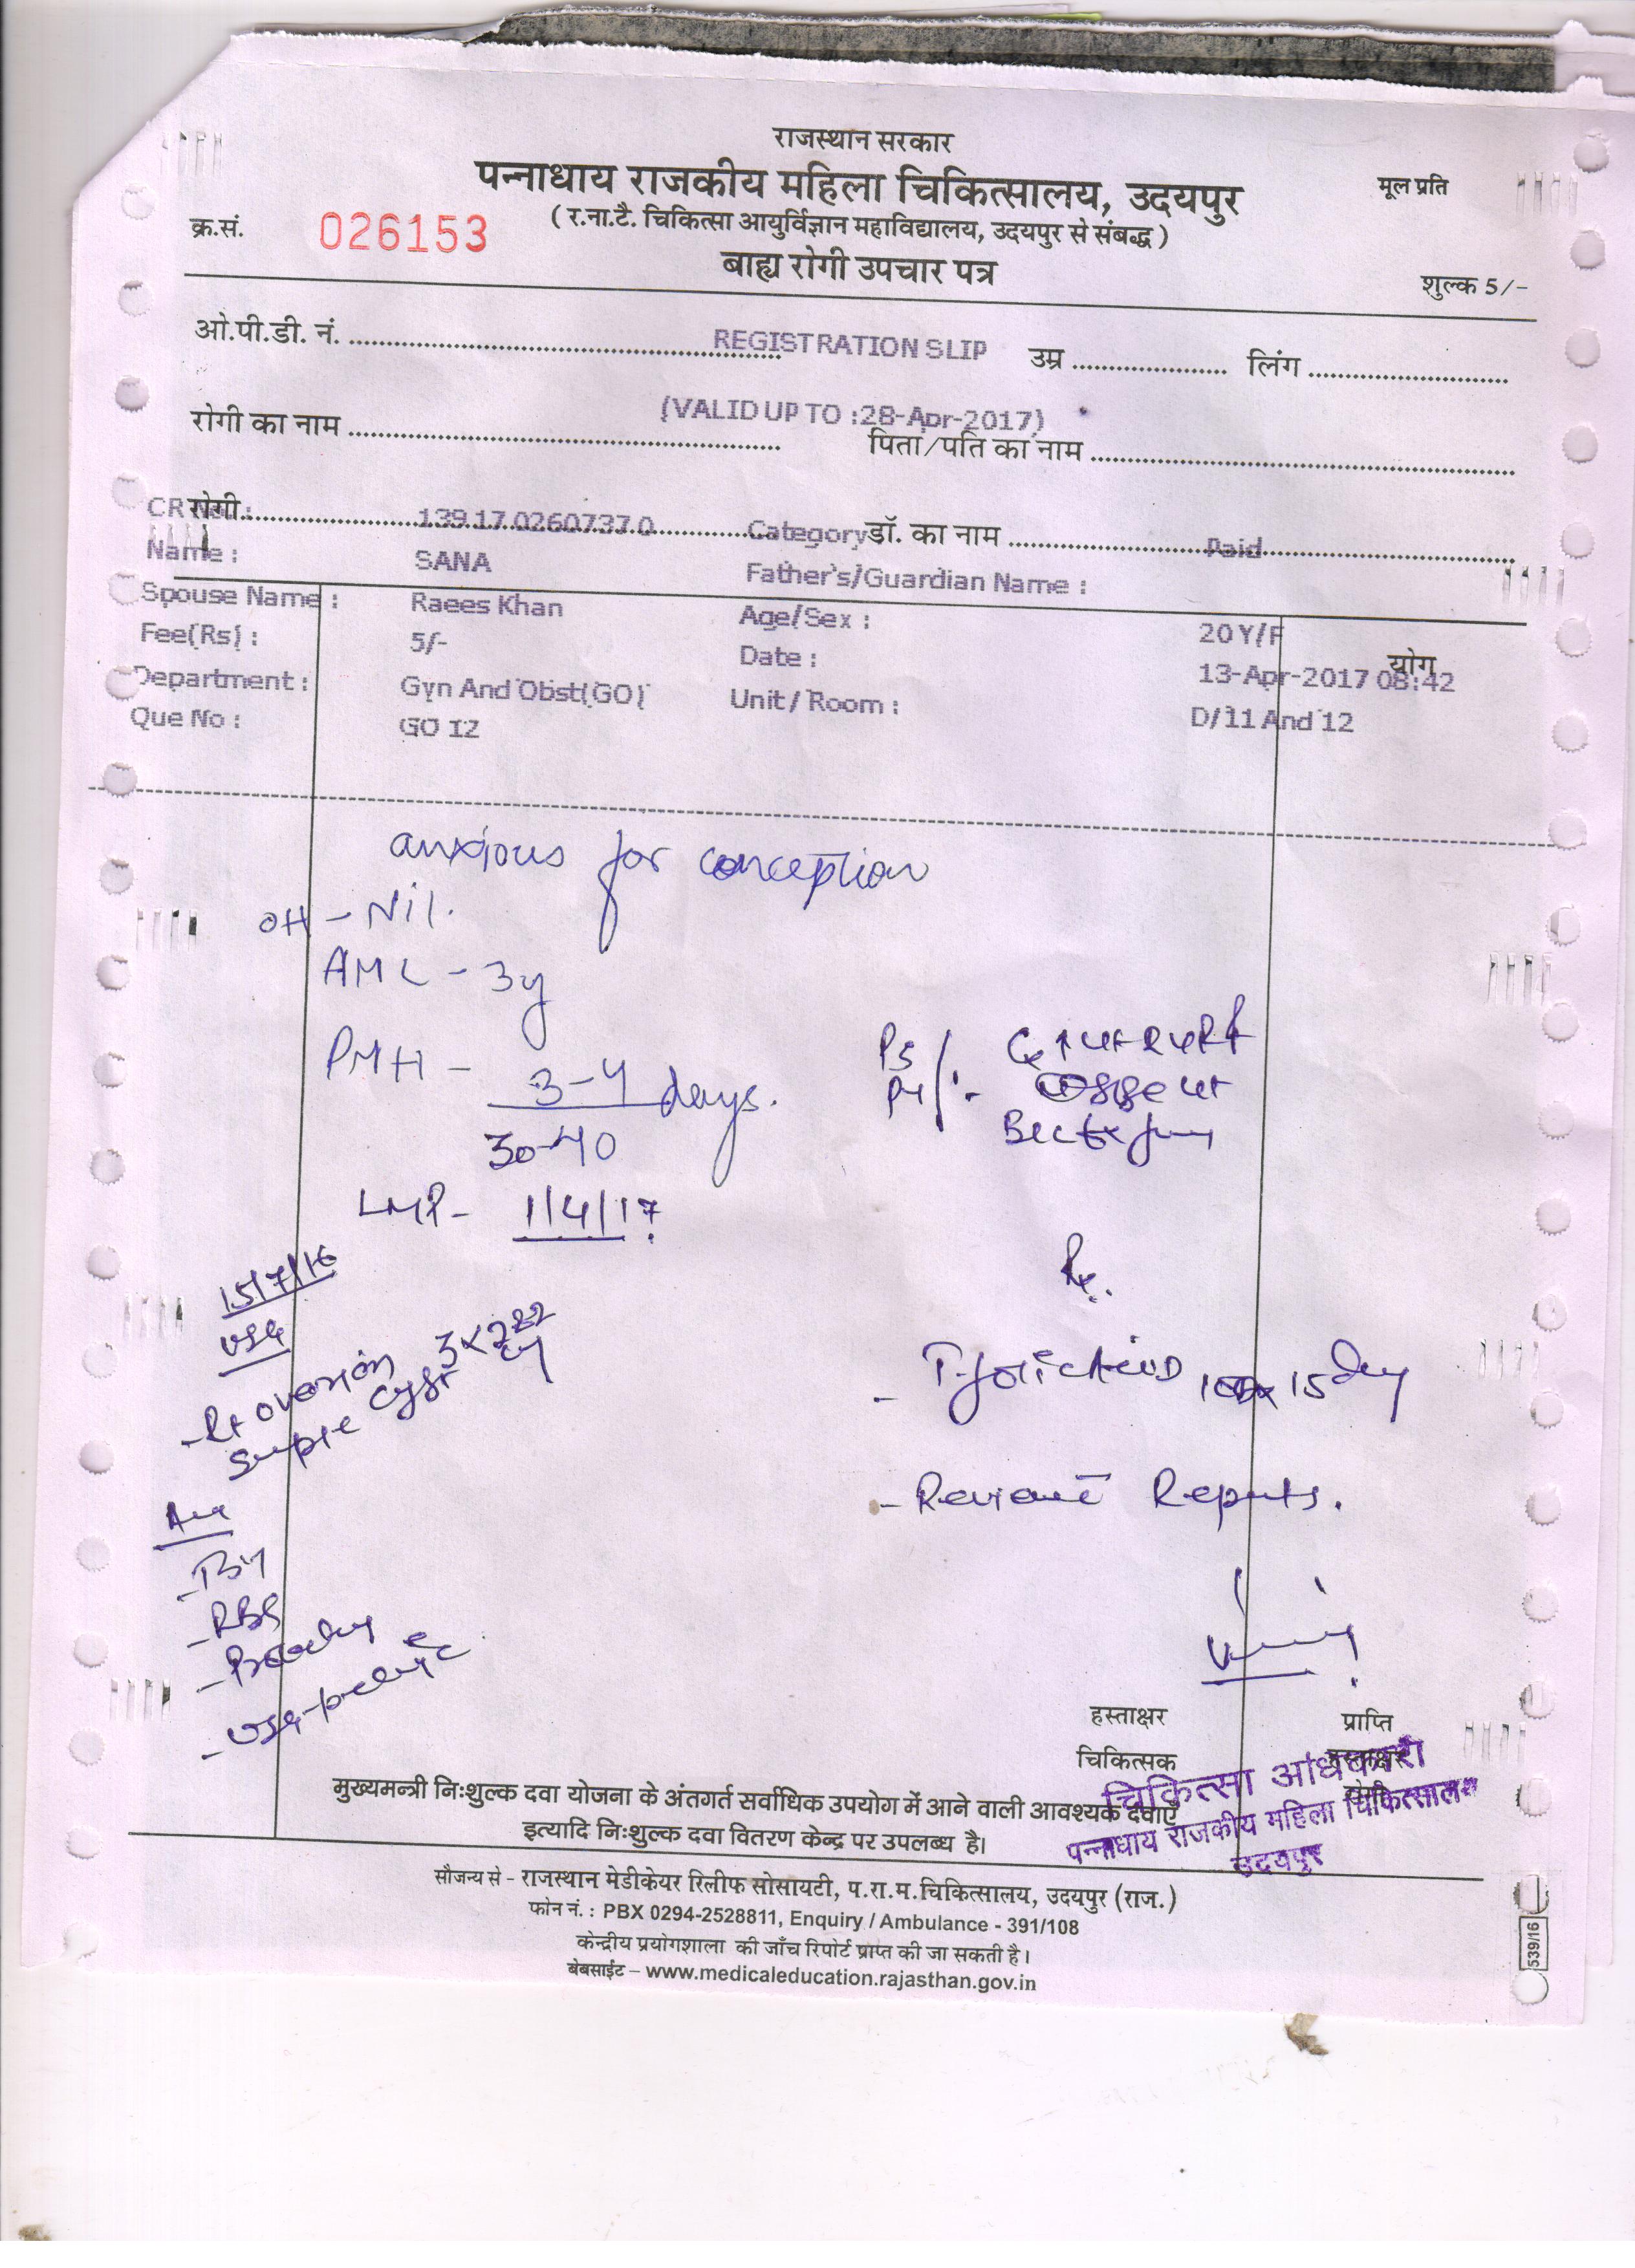 राजस्थान सरकार
पन्नाधाय राजकीय महिला चिकित्सालय, उदयपुर
मूल प्रति
क्र.सं. 026153
( र.ना.टै. चिकित्सा आयुर्विज्ञान महाविद्यालय, उदयपुर से संबद्ध )
बाह्य रोगी उपचार पत्र
शुल्क 5/-
ओ.पी.डी. नं. REGISTRATION SLIP उम्र लिंग
(VALID UP TO :28-Apr-2017)
रोगी का नाम पिता/पति का नाम
रोगी डॉ. का नाम
CR No : 139.17.0260737.0 Category Paid
Name : SANA Father's/Guardian Name :
Spouse Name : Raees Khan Age/Sex : 20 Y/F
योग
Fee(Rs) : 5/- Date : 13-Apr-2017 08:42
Department : Gyn And Obst(GO) Unit / Room : D/11 And 12
Que No : GO 12
anxious for conception
OH - Nil.
AML - 3y
PMH - 3-4 days.
30-40
LMP - 1/4/17
15/7/16
USG
- Rt ovarian 3x2.82
simple cyst cm
Rx.
- T. folic Acid 15 day
- Review Reports.
- RBS
- USG-pelvic
हस्ताक्षर प्राप्ति
चिकित्सक हस्ताक्षर
रोगी
चिकित्सा अधिकारी
पन्नाधाय राजकीय महिला चिकित्सालय
उदयपुर
मुख्यमन्त्री निःशुल्क दवा योजना के अंतगर्त सर्वाधिक उपयोग में आने वाली आवश्यक दवाएँ
इत्यादि निःशुल्क दवा वितरण केन्द्र पर उपलब्ध है।
सौजन्य से - राजस्थान मेडीकेयर रिलीफ सोसायटी, प.रा.म.चिकित्सालय, उदयपुर (राज.)
फोन नं. : PBX 0294-2528811, Enquiry / Ambulance - 391/108
केन्द्रीय प्रयोगशाला की जाँच रिपोर्ट प्राप्त की जा सकती है।
बेबसाईट – www.medicaleducation.rajasthan.gov.in
539/16